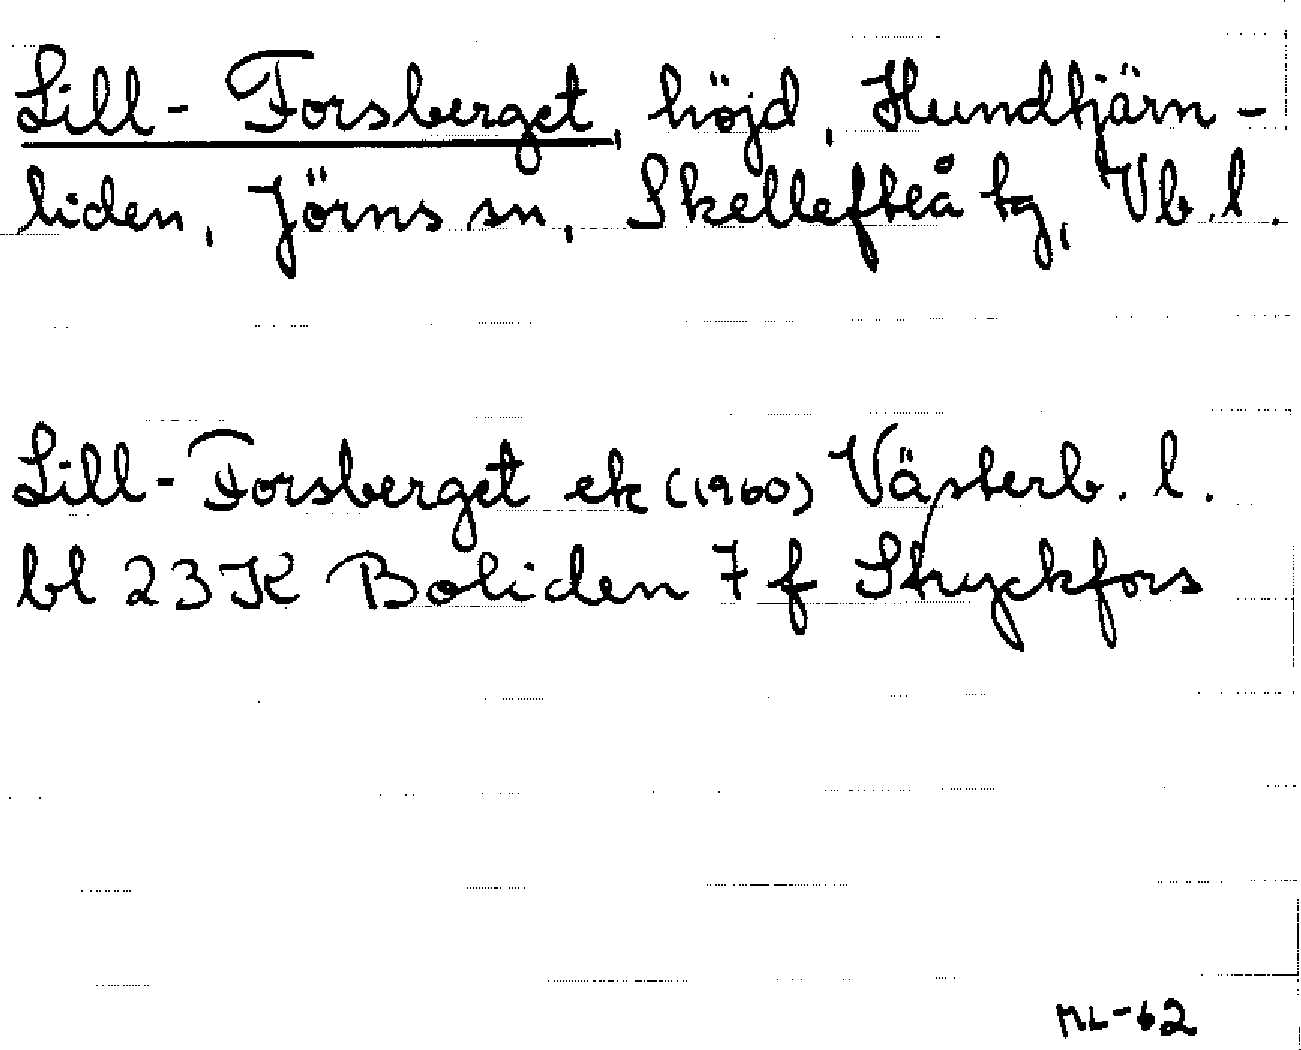 Lill-Forsberget, höjd, Hundtjärn-
liden, Jörns sn, Skellefteå tg, Vb.l.
Lill-Forsberget ek (1960) Västerb. l.
bl 23K Boliden 7f Stryckfors
ML-62